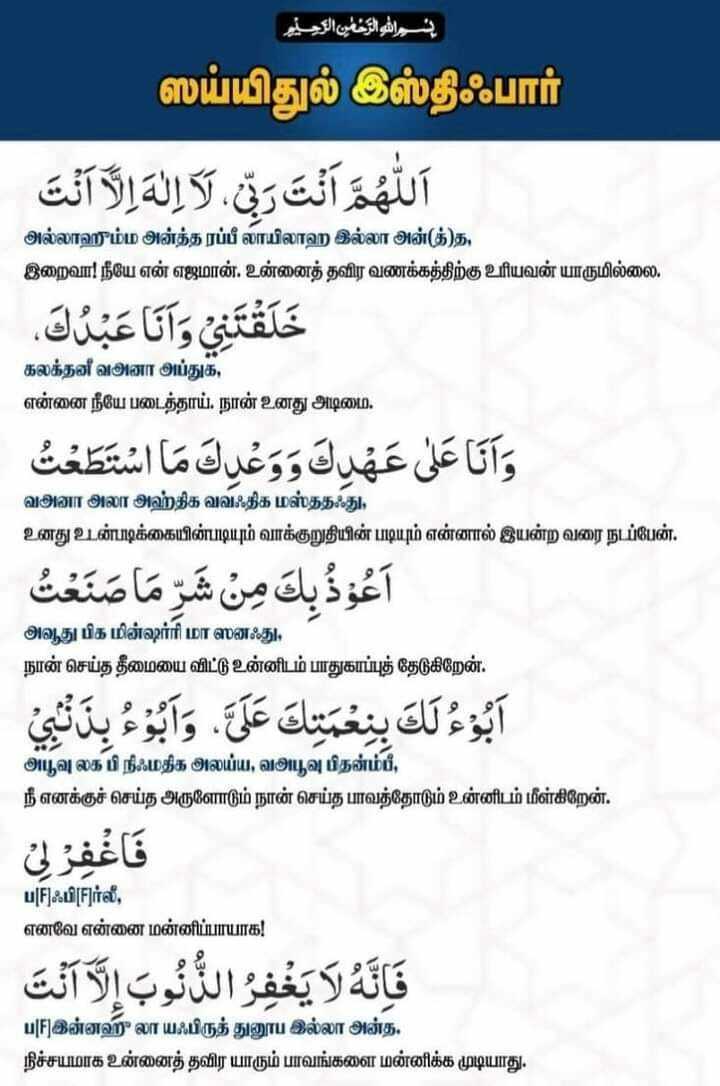 بِسْمِ اللهِ الرَّحْمٰنِ الرَّحِيْمِ
ஸய்யிதுல் இஸ்திஃபார்
اَللّٰهُمَّ اَنْتَ رَبِّيْ، لَآ اِلٰهَ اِلَّآ اَنْتَ
அல்லாஹும்ம அன்த்த ரப்பீ லாயிலாஹ இல்லா அன்(த்)த,
இறைவா! நீயே என் எஜமான். உன்னைத் தவிர வணக்கத்திற்கு உரியவன் யாருமில்லை.
خَلَقْتَنِيْ وَاَنَا عَبْدُكَ،
கலக்தனீ வஅனா அப்துக,
என்னை நீயே படைத்தாய். நான் உனது அடிமை.
وَاَنَا عَلٰى عَهْدِكَ وَوَعْدِكَ مَا اسْتَطَعْتُ
வஅனா அலா அஹ்திக வவஃதிக மஸ்ததஃது,
உனது உடன்படிக்கையின்படியும் வாக்குறுதியின் படியும் என்னால் இயன்ற வரை நடப்பேன்.
اَعُوْذُ بِكَ مِنْ شَرِّ مَا صَنَعْتُ
அவூது பிக மின்ஷர்ரி மா ஸனஃது,
நான் செய்த தீமையை விட்டு உன்னிடம் பாதுகாப்புத் தேடுகிறேன்.
اَبُوْءُ لَكَ بِنِعْمَتِكَ عَلَيَّ، وَاَبُوْءُ بِذَنْۢبِيْ
அபூவு லக பி நிஃமதிக அலய்ய, வஅபூவு பிதன்ம்பீ,
நீ எனக்குச் செய்த அருளோடும் நான் செய்த பாவத்தோடும் உன்னிடம் மீள்கிறேன்.
فَاغْفِرْ لِيْ
ப[F]ஃபி[F]ர்லீ,
எனவே என்னை மன்னிப்பாயாக!
فَاِنَّهٗ لَا يَغْفِرُ الذُّنُوْبَ اِلَّآ اَنْتَ
ப[F]இன்னஹூ லா யஃபிருத் துனூப இல்லா அன்த.
நிச்சயமாக உன்னைத் தவிர யாரும் பாவங்களை மன்னிக்க முடியாது.